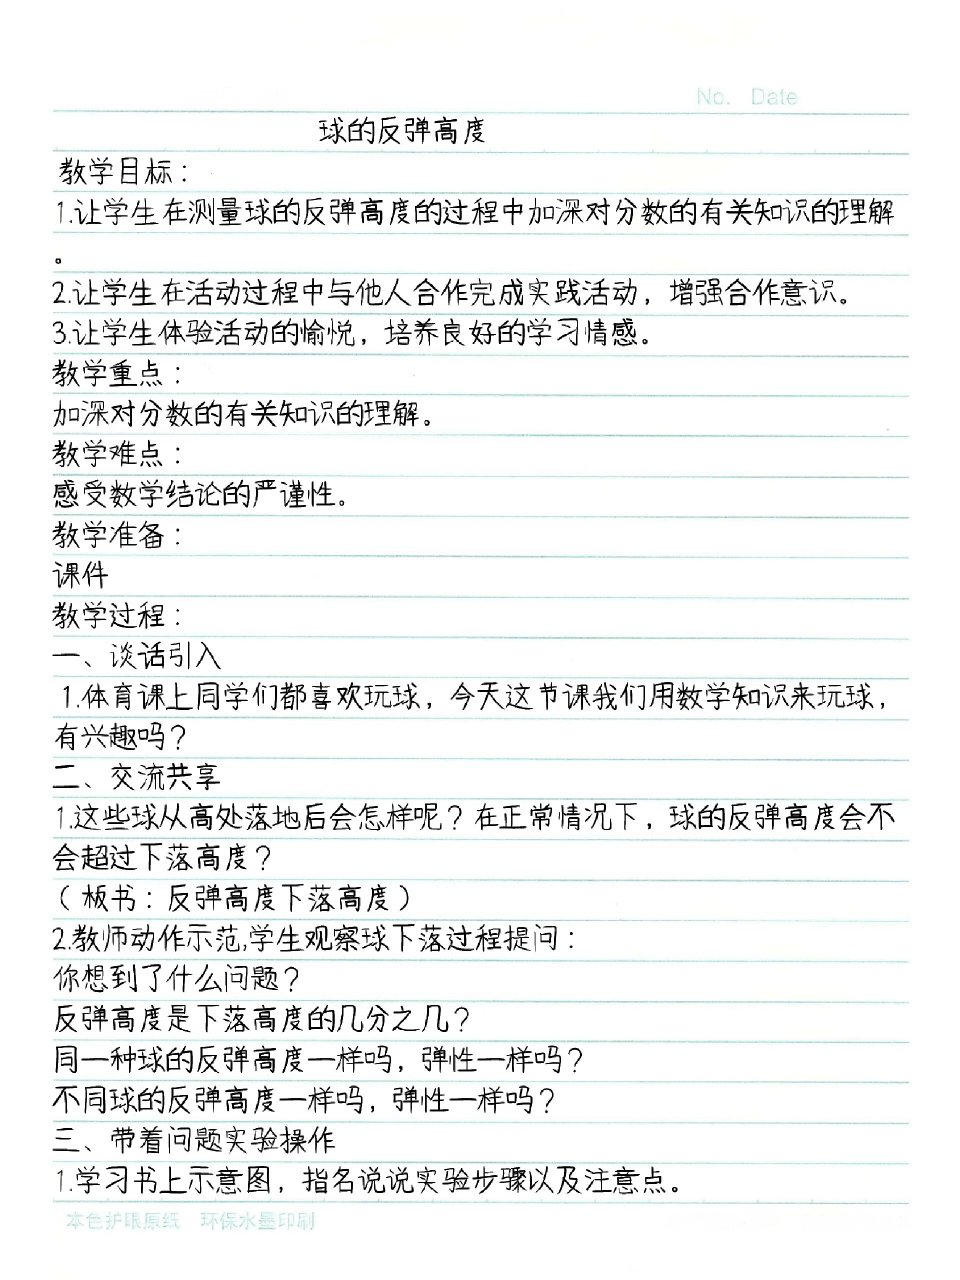 No. Date
球的反弹高度
教学目标：
1.让学生在测量球的反弹高度的过程中加深对分数的有关知识的理解
。
2.让学生在活动过程中与他人合作完成实践活动，增强合作意识。
3.让学生体验活动的愉悦，培养良好的学习情感。
教学重点：
加深对分数的有关知识的理解。
教学难点：
感受数学结论的严谨性。
教学准备：
课件
教学过程：
一、谈话引入
1.体育课上同学们都喜欢玩球，今天这节课我们用数学知识来玩球，
有兴趣吗？
二、交流共享
1.这些球从高处落地后会怎样呢？在正常情况下，球的反弹高度会不
会超过下落高度？
（板书：反弹高度下落高度）
2.教师动作示范,学生观察球下落过程提问：
你想到了什么问题？
反弹高度是下落高度的几分之几？
同一种球的反弹高度一样吗，弹性一样吗？
不同球的反弹高度一样吗，弹性一样吗？
三、带着问题实验操作
1.学习书上示意图，指名说说实验步骤以及注意点。
本色护眼原纸 环保水墨印刷